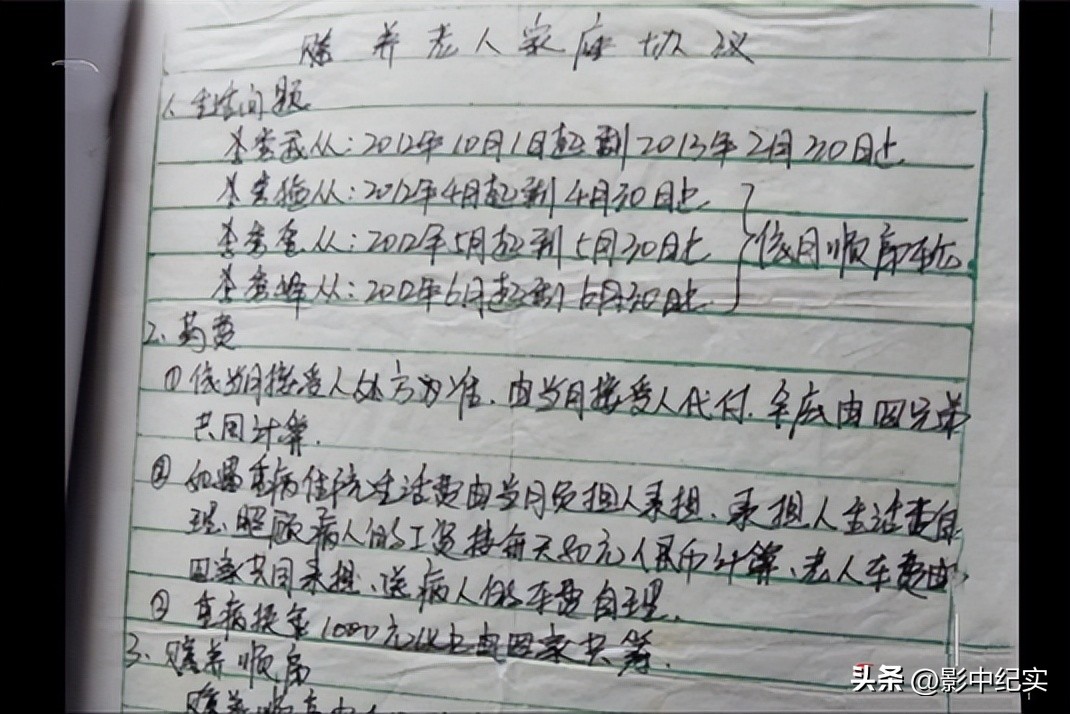 赡养老人家庭协议
1、生活问题
从:2012年10月1日起到2013年2月30日止
从:2012年4月起到4月30日止
从:2012年5月起到5月30日止
从:2012年6月起到6月30日止
依月顺序轮
2、药费
①依当月接受人处方为准、由当月接受人代付、年底由四兄弟
共同计算.
②如遇重病住院生活费由当月负担人承担、承担人生活费自
理、照顾病人的工资按每天80元人民币计算、老人车费由
四家共同承担、送病人的车费自理.
③重病换季1000元以上由四家共筹.
3、赡养顺序
赡养顺序由
头条 @影中纪实